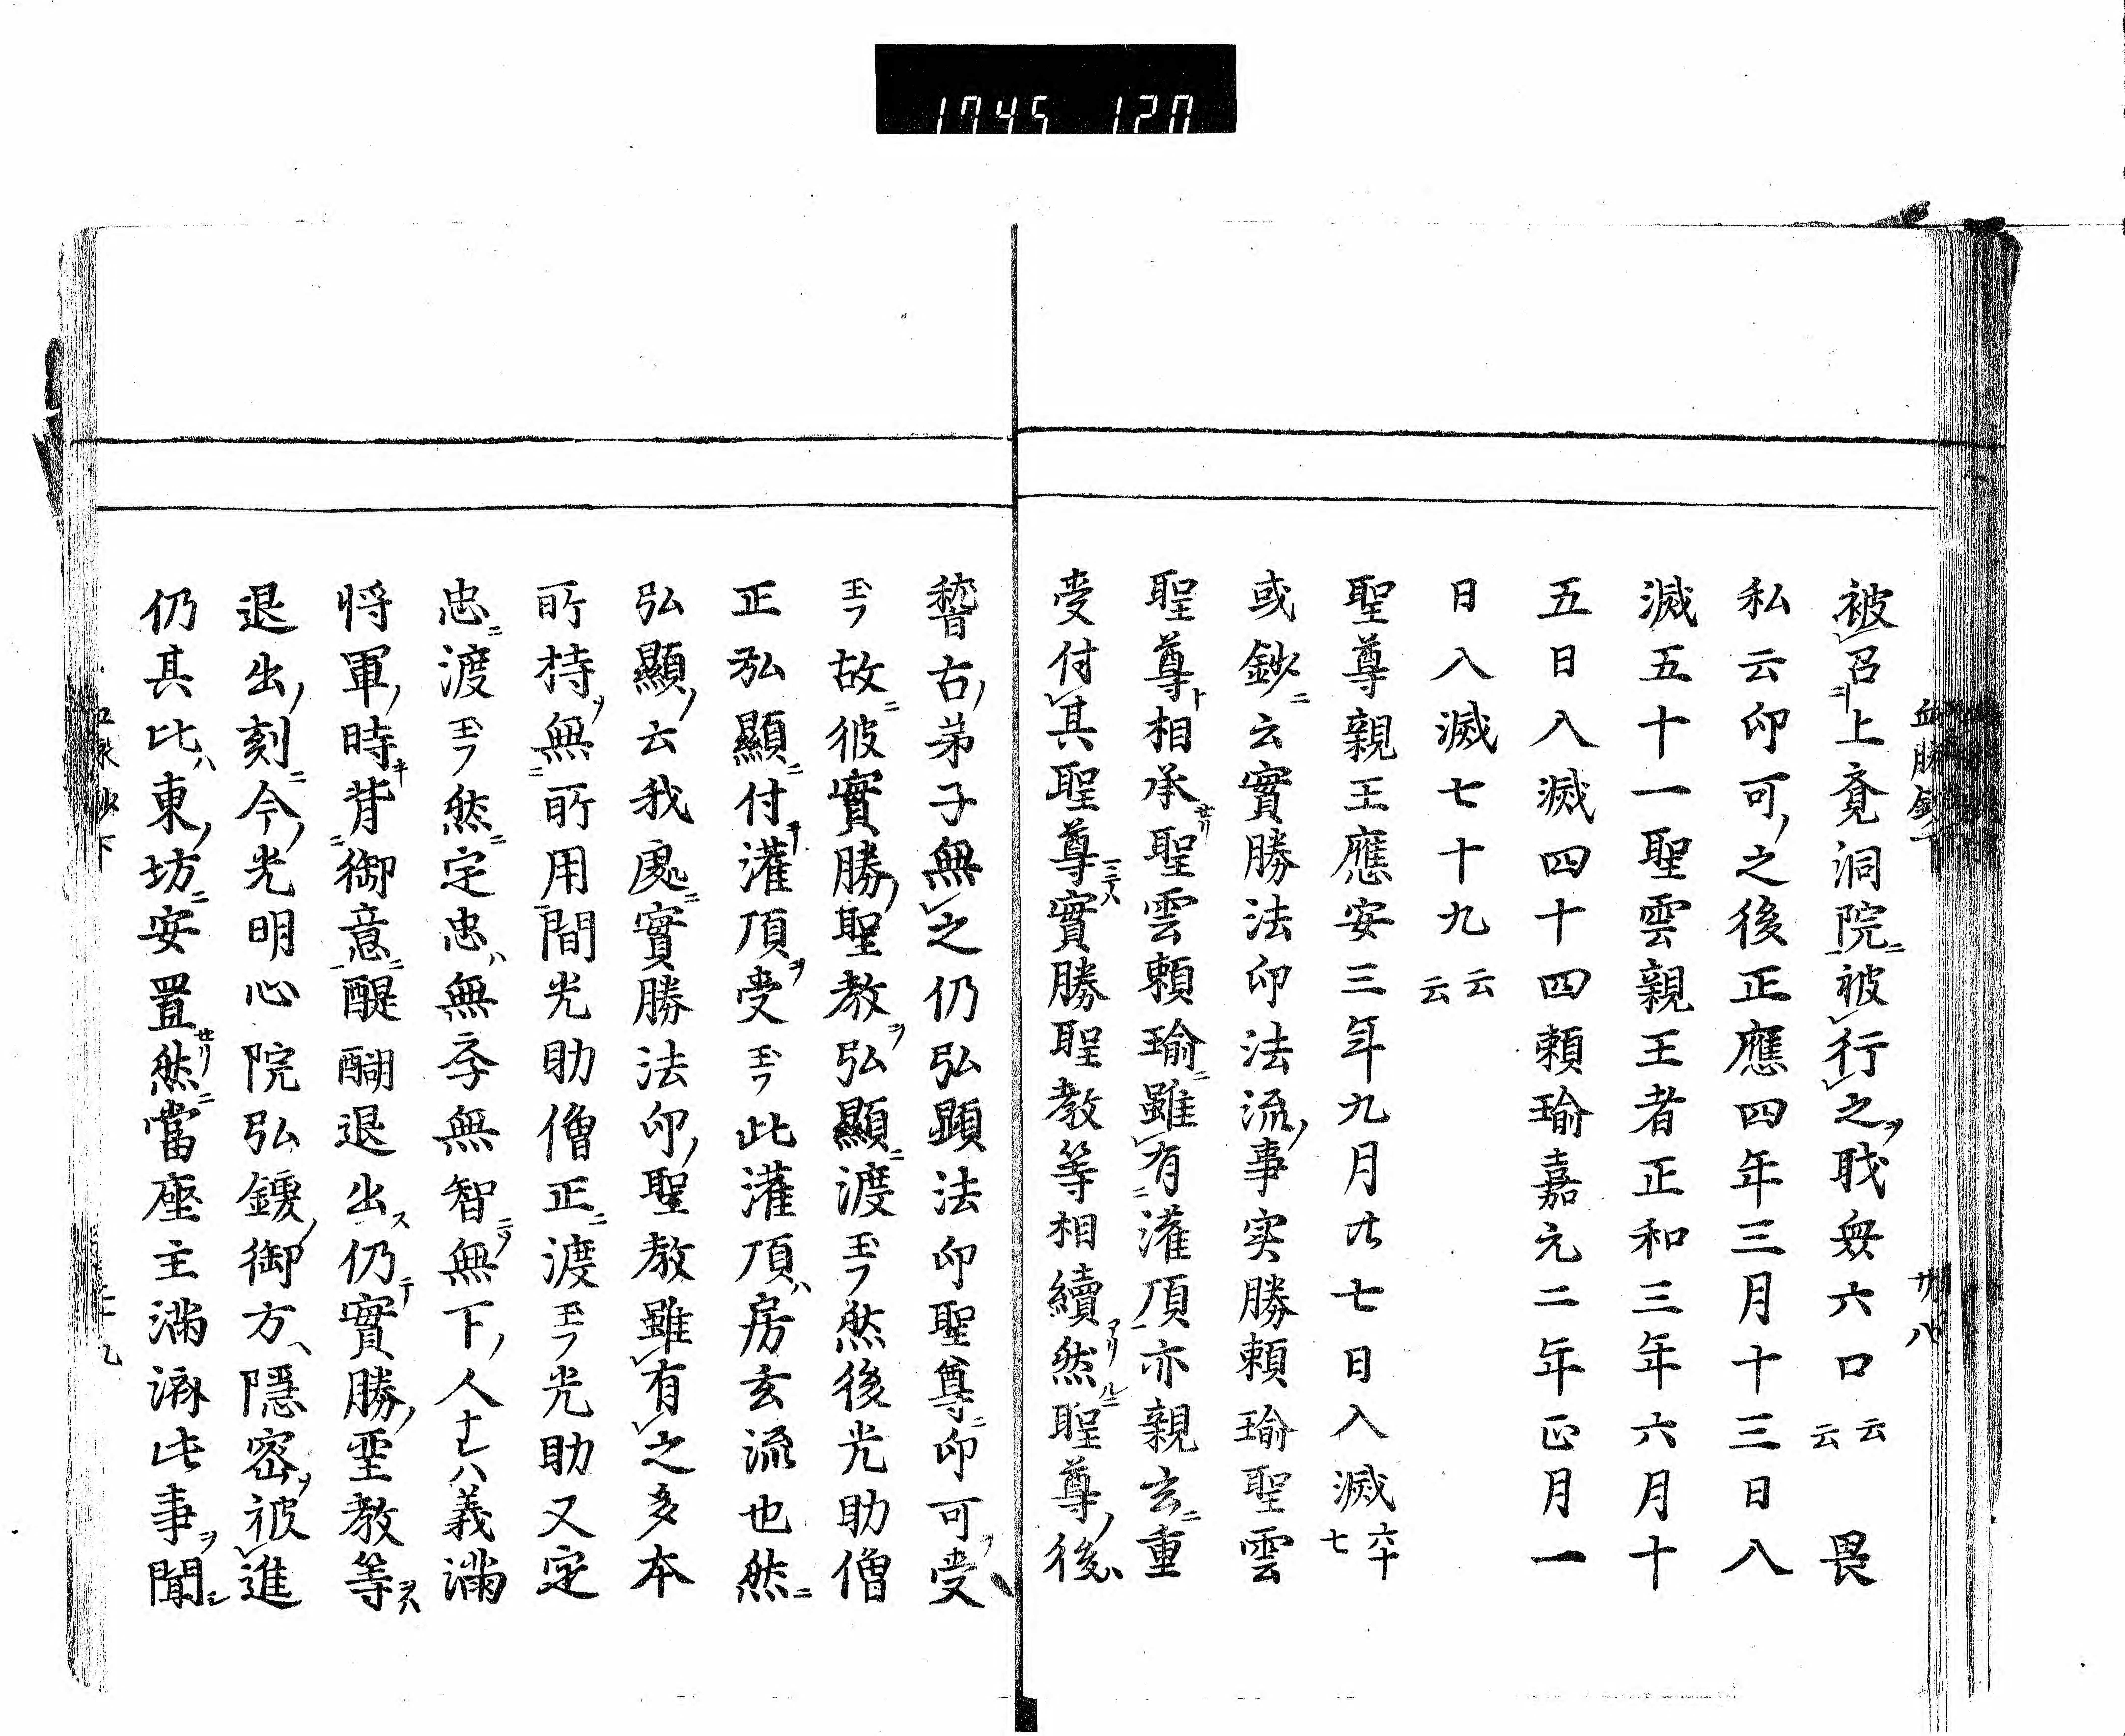 1745 120
被召上竟洞院被行之戝毎六口云云 畏
私云印可之後正應四年三月十三日八
滅五十一聖雲親王者正和三年六月十
五日入滅四十四頼瑜嘉元二年正月一
日入滅七十九云云
聖尊親王應安三年九月廿七日入滅六十七
或鈔云實勝法印法流事実勝頼瑜聖雲
聖尊相承聖雲頼瑜雖有灌頂亦親玄重
受付其聖尊實勝聖教等相續然聖尊後
嵆古弟子無之仍弘顕法印聖尊印可受
玉フ故彼實勝聖教弘顯渡玉フ然後光助僧
正弘顯付灌頂受玉フ此灌頂房玄流也然
弘顯云我處實勝法印聖教雖有之多本
所持無所用間光助僧正渡玉フ光助又定
忠渡玉フ然定忠無孝無智無下人ナレハ義滿
将軍時背御意醍醐退出仍實勝聖教等
退出刻今光明心院弘鑁御方隱密被進
仍其比東坊安置然當座主滿濟此事聞